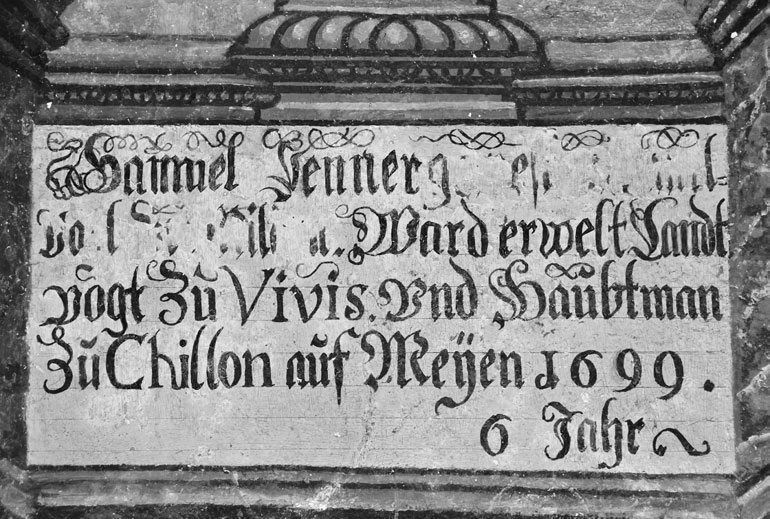 Samuel Jenner
Ward erwelt Landt
vogt Zu Vivis. Vnd Haubtman
Zu Chillon auf Meyen 1699.
6 Jahr